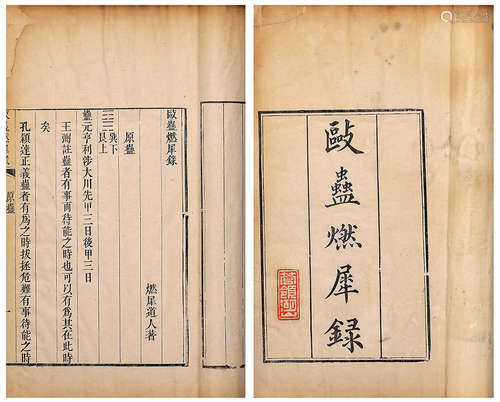 毆蠱燃犀錄
毆蠱燃犀錄
燃犀道人著
原蠱
巽下
艮上
蠱元亨利涉大川先甲三日後甲三日
王弼註蠱者有事而待能之時也可以有為其在此時
矣
孔穎達正義蠱者有為之時拔拯危難有事待能之時
原蠱